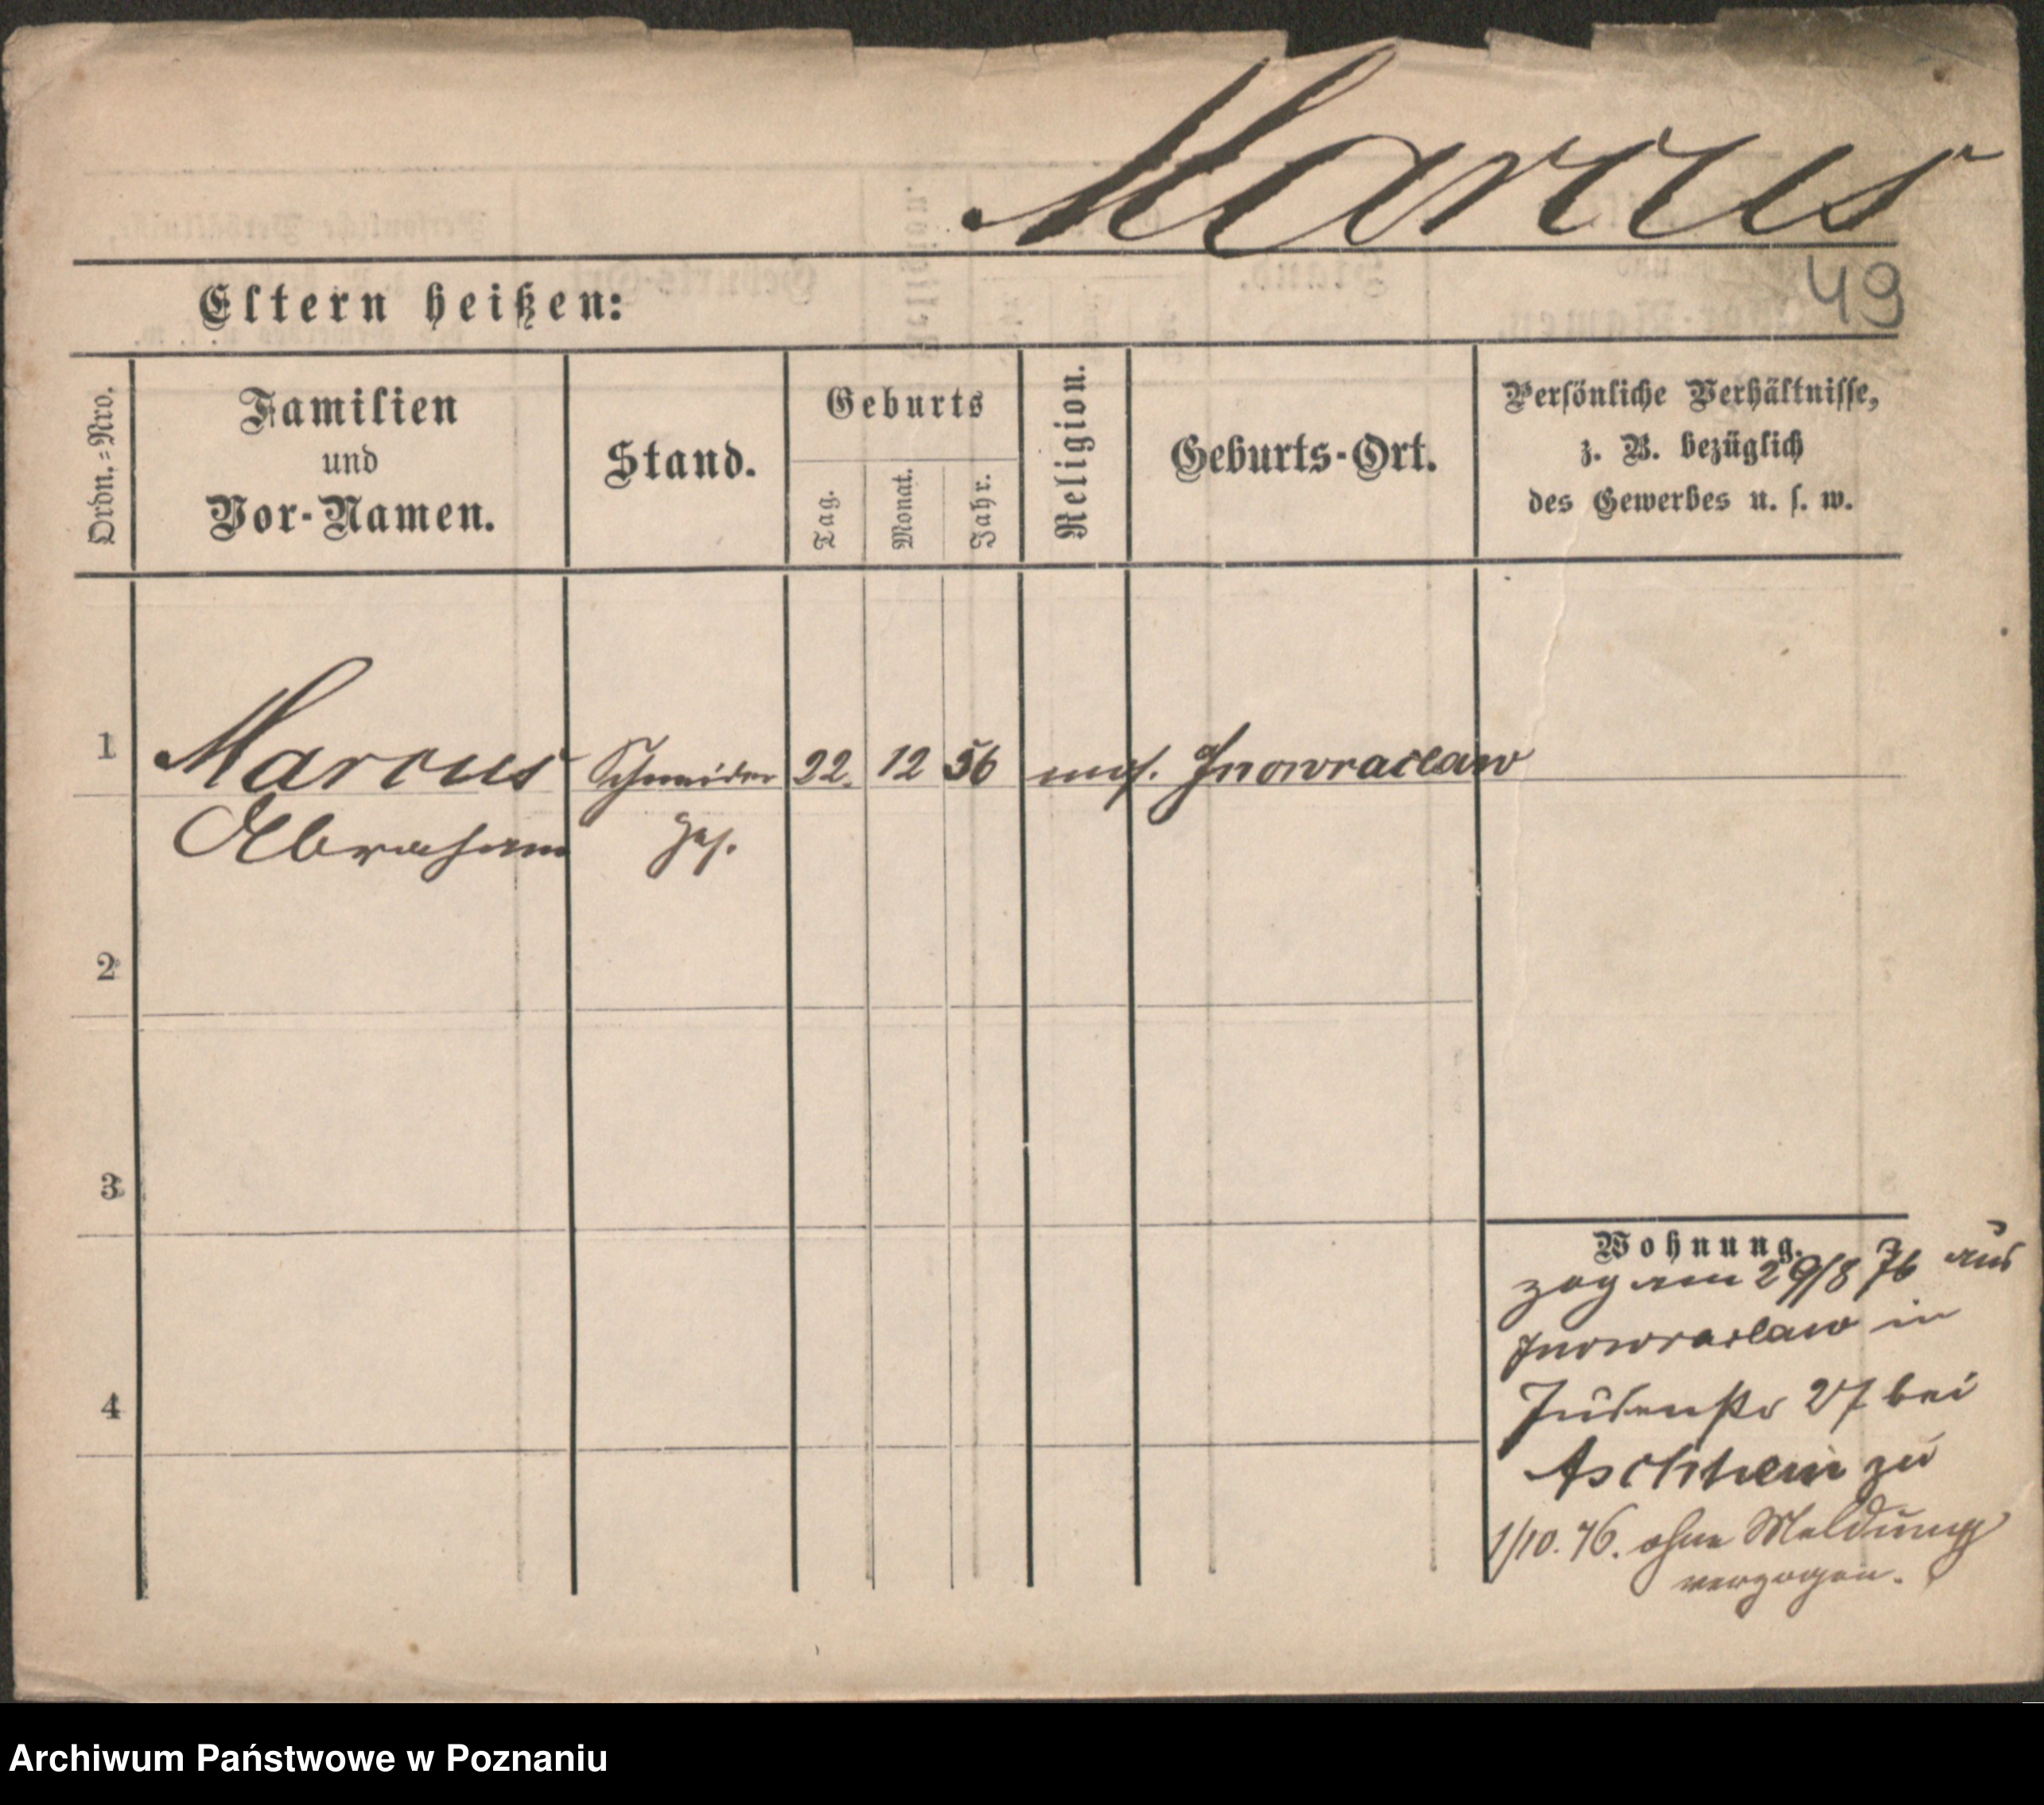 Marcus
49
Eltern heißen:
Ordn.=Nro.
Familien
und
Vor-Namen.
Stand.
Geburts
Tag.
Monat.
Jahr.
Religion.
Geburts-Ort.
Persönliche Verhältnisse,
z. B. bezüglich
des Gewerbes u. s. w.
1 Marcus Schneider 22. 12 56 mos. Inowraclaw
Abraham Ges.
2
3
4
Wohnung.
zog am 29/8 76 aus
Inowraclaw in
Judenstr 27 bei
Aschheim zu
1/10. 76. ohne Meldung
verzogen.
Archiwum Państwowe w Poznaniu